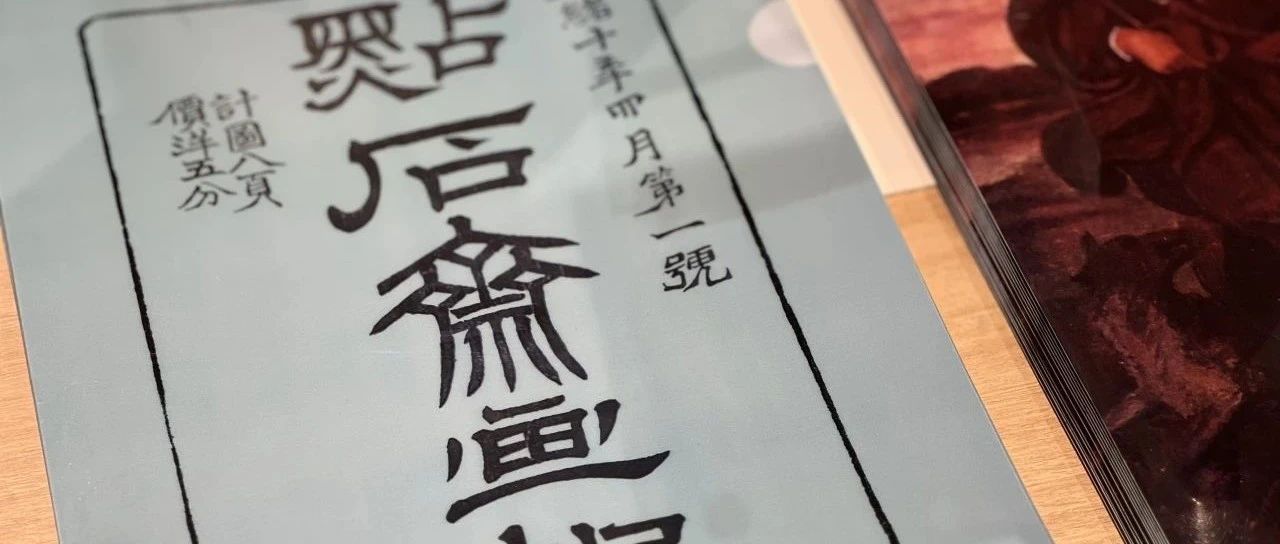 緒十年四月第一號
點石齋画
計圖八頁
價洋五分